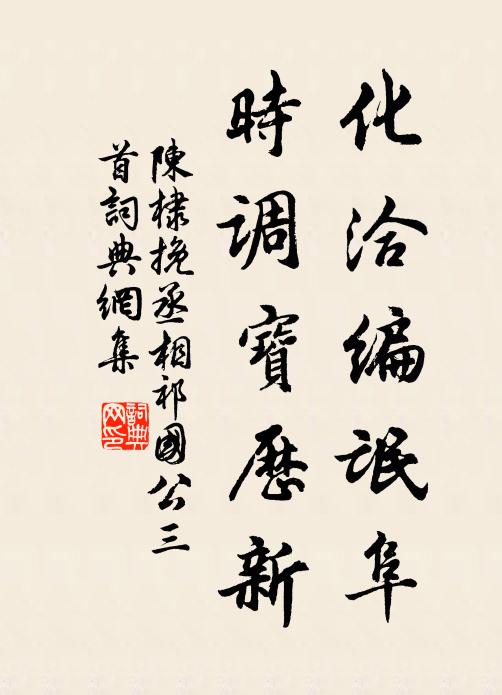 化洽編氓阜
時調寶厯新
陳棣挽丞相祁國公三
首詞典網集
詞典
网印